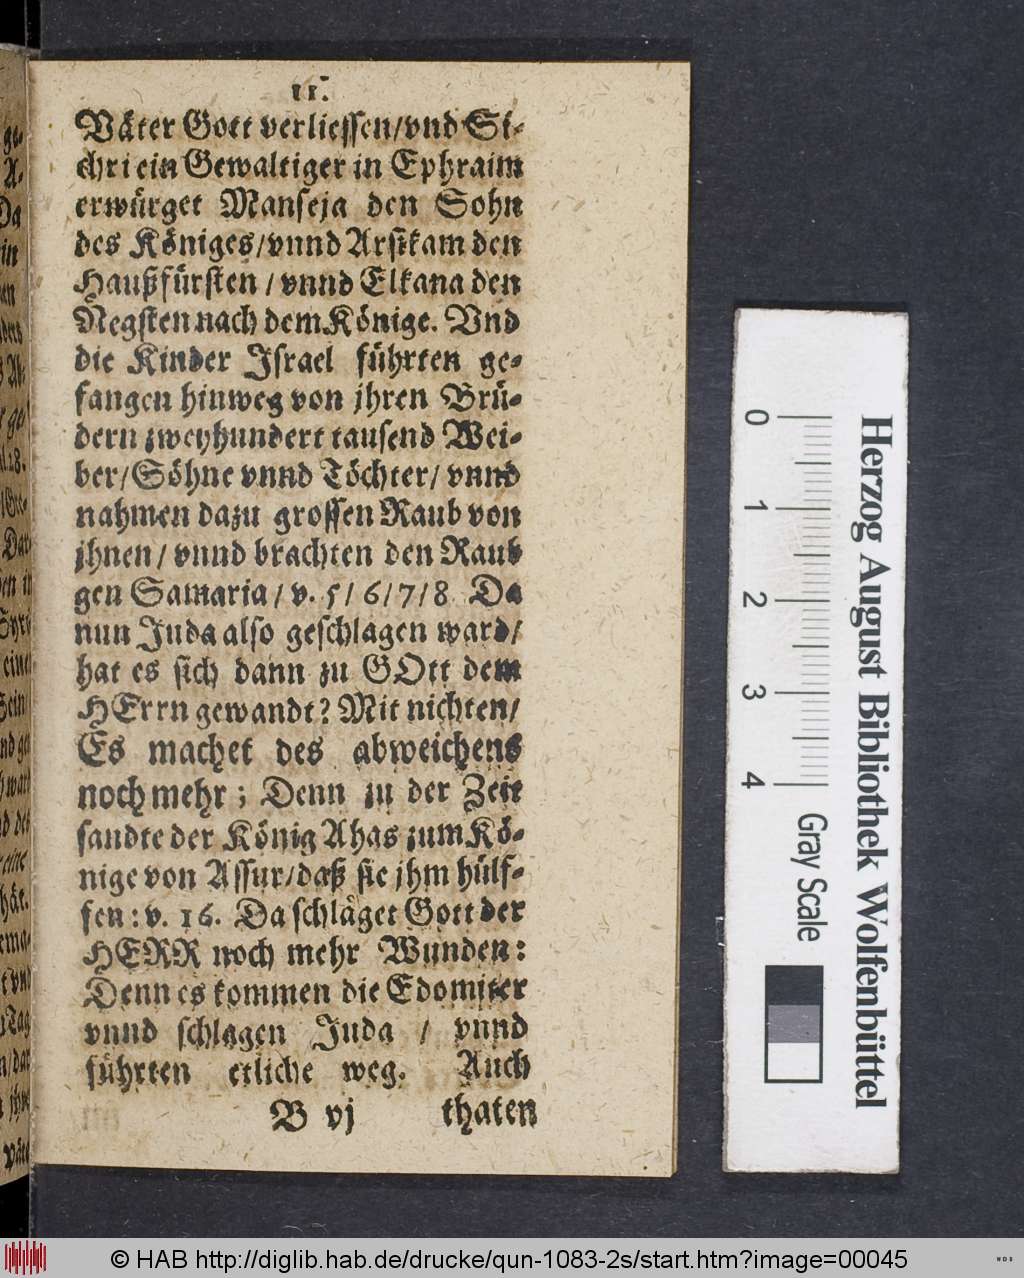 11.
Väter Gott verliessen/vnd Si-
chri ein Gewaltiger in Ephraim
erwürget Manseja den Sohn
des Königes/vnnd Arsikam den
Haußfürsten / vnnd Elkana den
Negsten nach dem Könige. Vnd
die Kinder Israel führten ge-
fangen hinweg von jhren Brü-
dern zweyhundert tausend Wei-
ber/Söhne vnnd Töchter/ vnnd
nahmen dazu grossen Raub von
jhnen / vnnd brachten den Raub
gen Samaria / v. 5/ 6/7/8 Da
nun Juda also geschlagen ward/
hat es sich dann zu GOtt dem
HErrn gewandt? Mit nichten/
Es machet des abweichens
noch mehr ; Denn zu der Zeit
sandte der König Ahas zum Kö-
nige von Assur/daß sie jhm hülf-
fen : v. 16. Da schläget Gott der
HERR noch mehr Wunden:
Denn es kommen die Edomiter
vnnd schlagen Juda / vnnd
führten etliche weg. Auch
B vj thaten
0 1 2 3 4
Gray Scale
Herzog August Bibliothek Wolfenbüttel
© HAB http://diglib.hab.de/drucke/qun-1083-2s/start.htm?image=00045